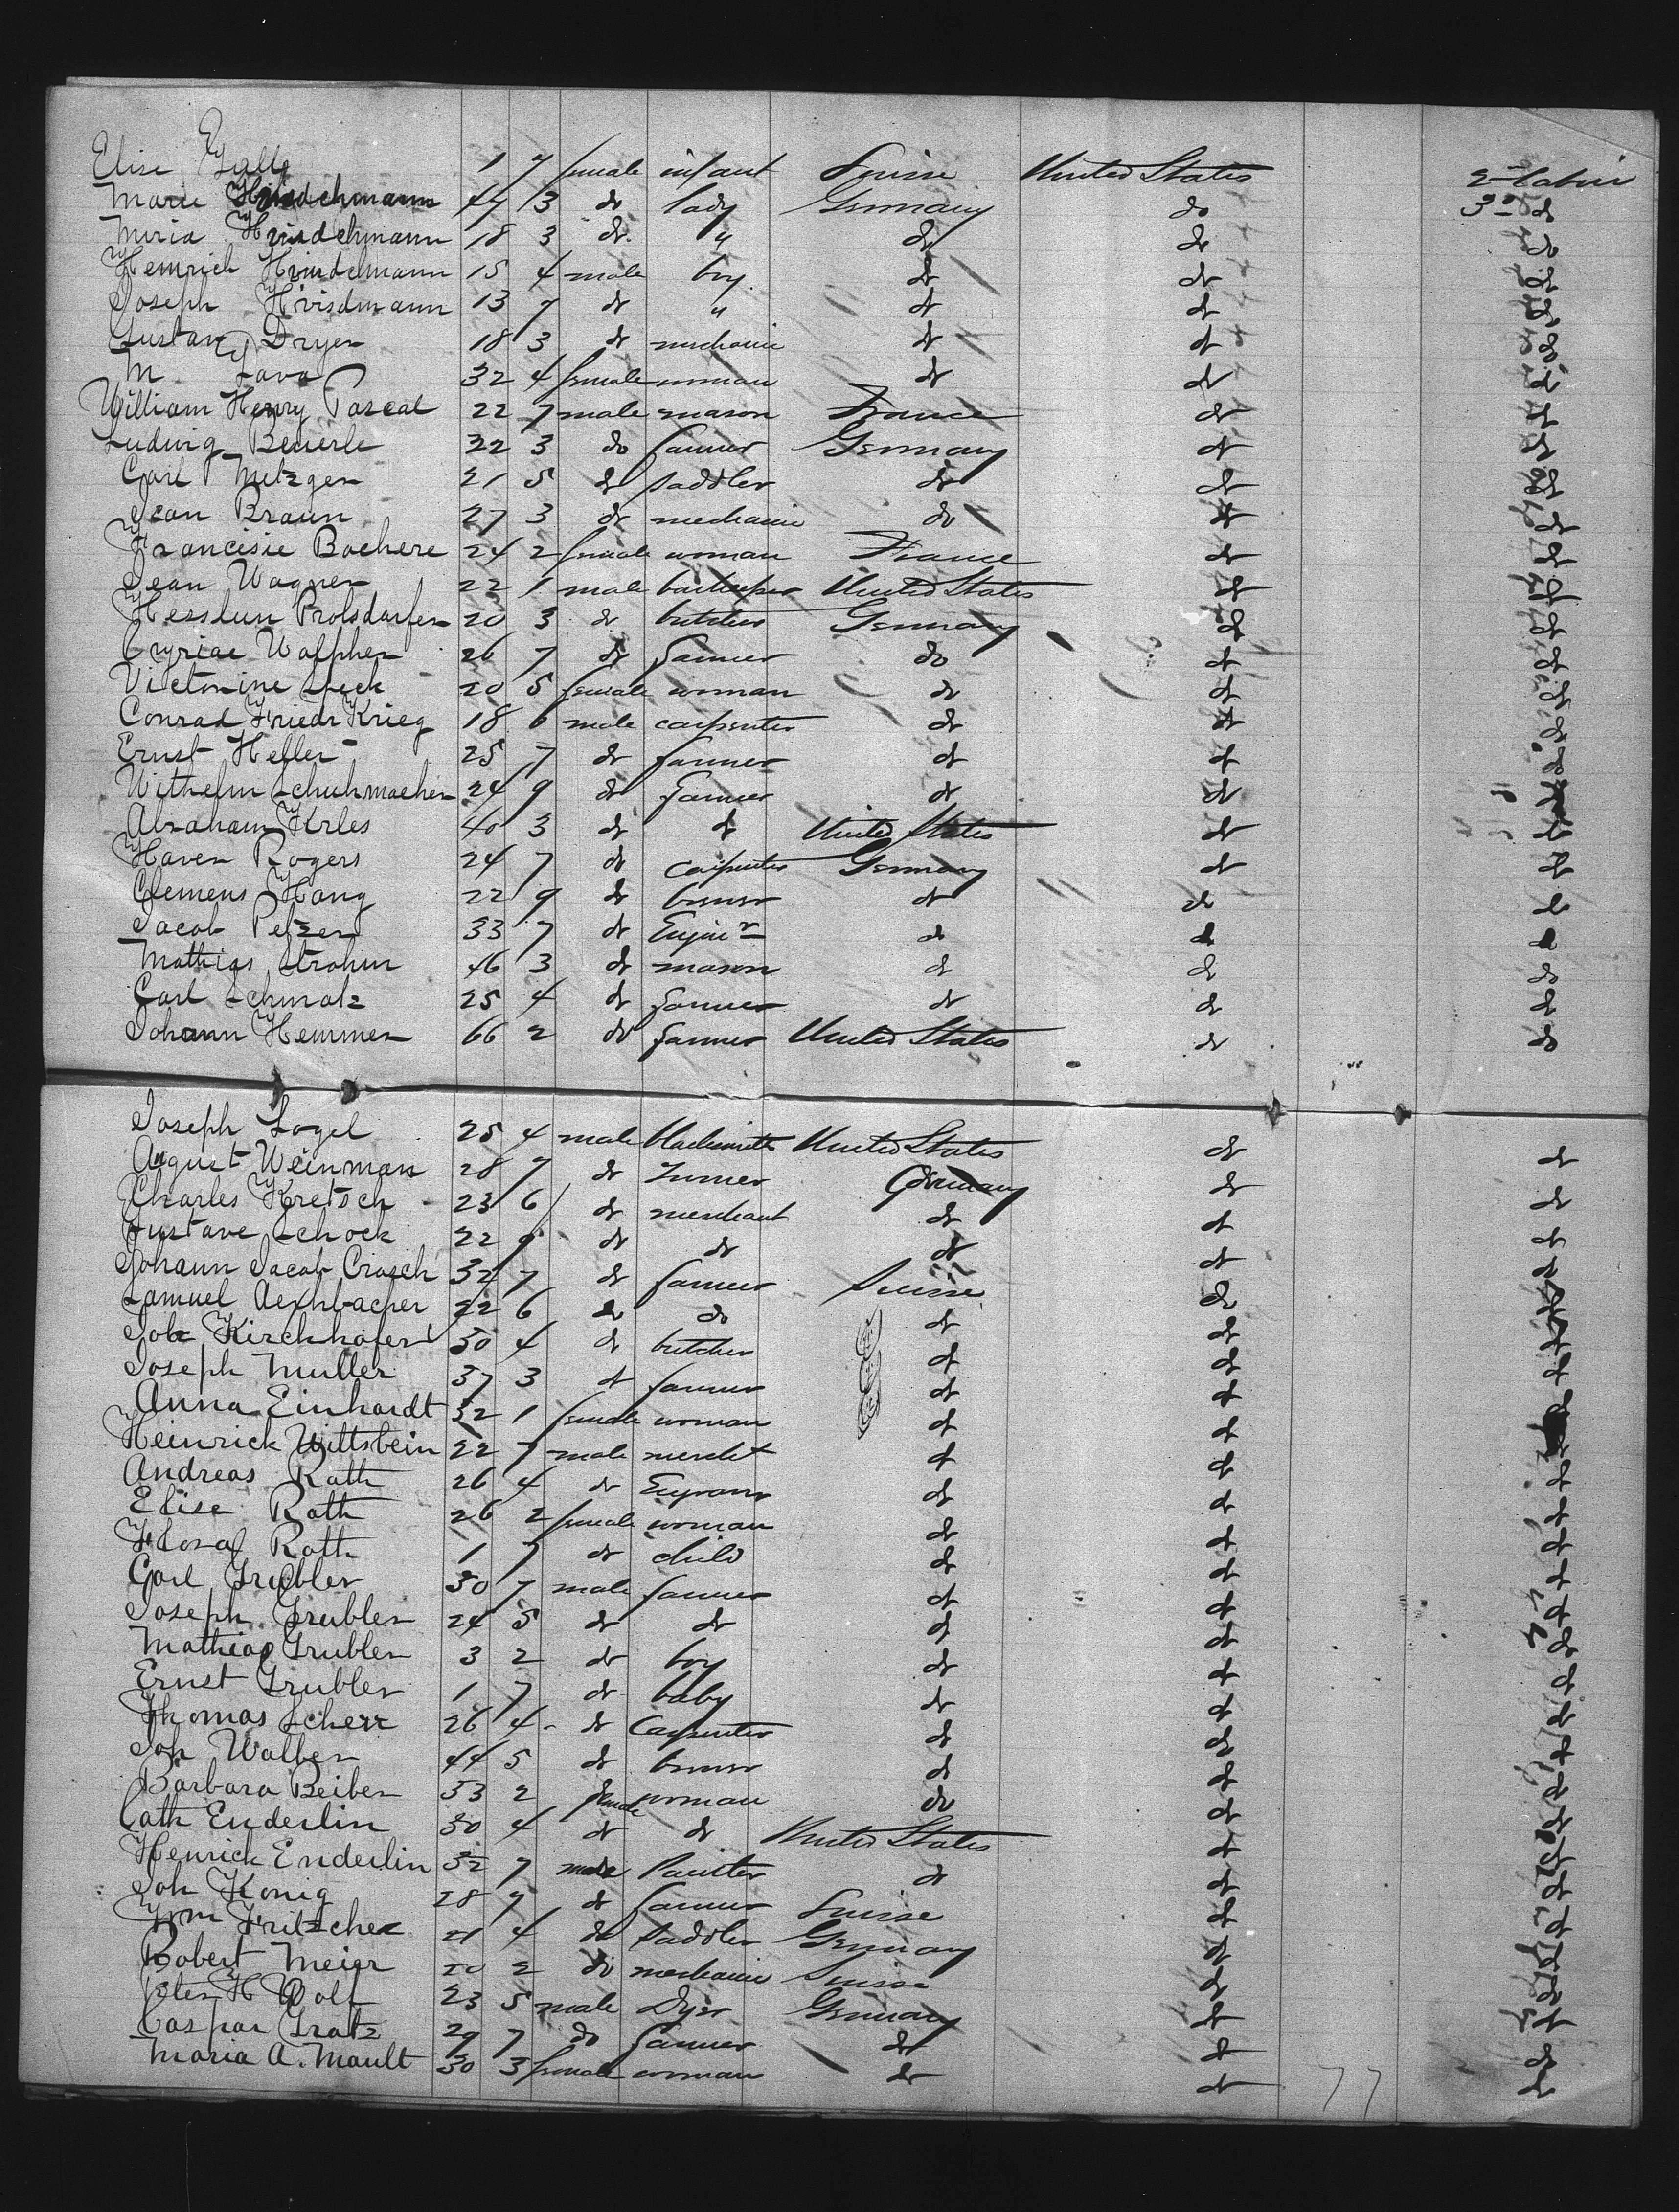 Elise Gally 1 7 female infant Suisse United States 2- Cabin
Marie Hindchmann 44 3 do lady Germany do 3- do
Miria Hrindchmann 18 3 do " do do do
Heinrich Hrindchmann 15 4 male boy do do do
Joseph Hrisdmann 13 7 do " do do do
Gustav Dryer 18 3 do mechanic do do do
M Sava 32 4 female woman do do do
William Henry Pascal 22 7 male mason France do do
Ludwig Beuerle 22 3 do farmer Germany do do
Carl Metzger 21 5 do saddler do do do
Jean Braun 27 3 do mechanic do do do
Francisie Bochere 24 2 female woman France do do
Jean Wagner 22 1 male barkeeper United States do do
Hesslun Prolsdarfer 20 3 do butcher Germany do do
Cyriac Walpher 26 7 do farmer do do do
Victorine Speck 20 5 female woman do do do
Conrad Friedr Krieg 18 6 male carpenter do do do
Ernst Heller 25 7 do farmer do do do
Wilhelm Schuhmacher 24 9 do farmer do do do
Abraham Krles 40 3 do do United States do do
Haver Rogers 24 7 do carpenter Germany do do
Clemens Hang 22 9 do brewer do do do
Jacob Pelzer 33 7 do Engin r do do do
Mathias Strohm 46 3 do mason do do do
Carl Schmalz 25 4 do farmer do do do
Johann Hemmer 66 2 do farmer United States do do
Joseph Logel 25 4 male blacksmith United States do do
August Weinman 28 7 do Turner Germany do do
Charles Kretsch 23 6 do merchant do do do
Gustave Schock 22 9 do do do do do
Johann Jacob Crasch 32 7 do farmer Suisse do do
Samuel Aeschbacher 22 6 do do do do do
Joh Kirchhofer 30 4 do butcher do do do
Joseph Muller 37 3 do farmer do do do
Anna Einhardt 32 1 female woman do do do
Heinrick Wittsbein 22 7 male mercht do do do
Andreas Roth 26 4 do do do do
Elise Roth 26 2 female woman do do do
Floraf Roth 1 7 do child do do do
Carl Grubler 30 7 male farmer do do do
Joseph Grubler 24 5 do do do do do
Mathias Grubler 3 2 do boy do do do
Ernst Grubler 1 7 do baby do do do
Thomas Scherr 26 4 do Carpenter do do do
Joh Walber 44 5 do brewer do do do
Barbara Beiber 53 2 female woman do do do
Cath Enderlin 30 4 do do United States do do
Henrick Enderlin 32 7 male Painter do do do
Joh Konig 28 7 do farmer Suisse do do
Wm Fritzcher 21 4 do saddler Germany do do
Robert Meier 20 2 do mechanic Suisse do do
Peter H Wolf 23 5 male Dyer Germany do do
Caspar Gratz 29 7 do farmer do do do
Maria A. Mault 30 3 female woman do do do
77